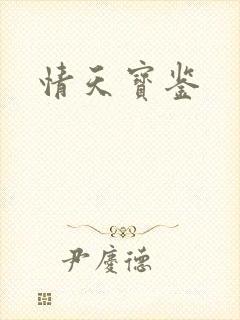 情天寶鉴
尹慶德